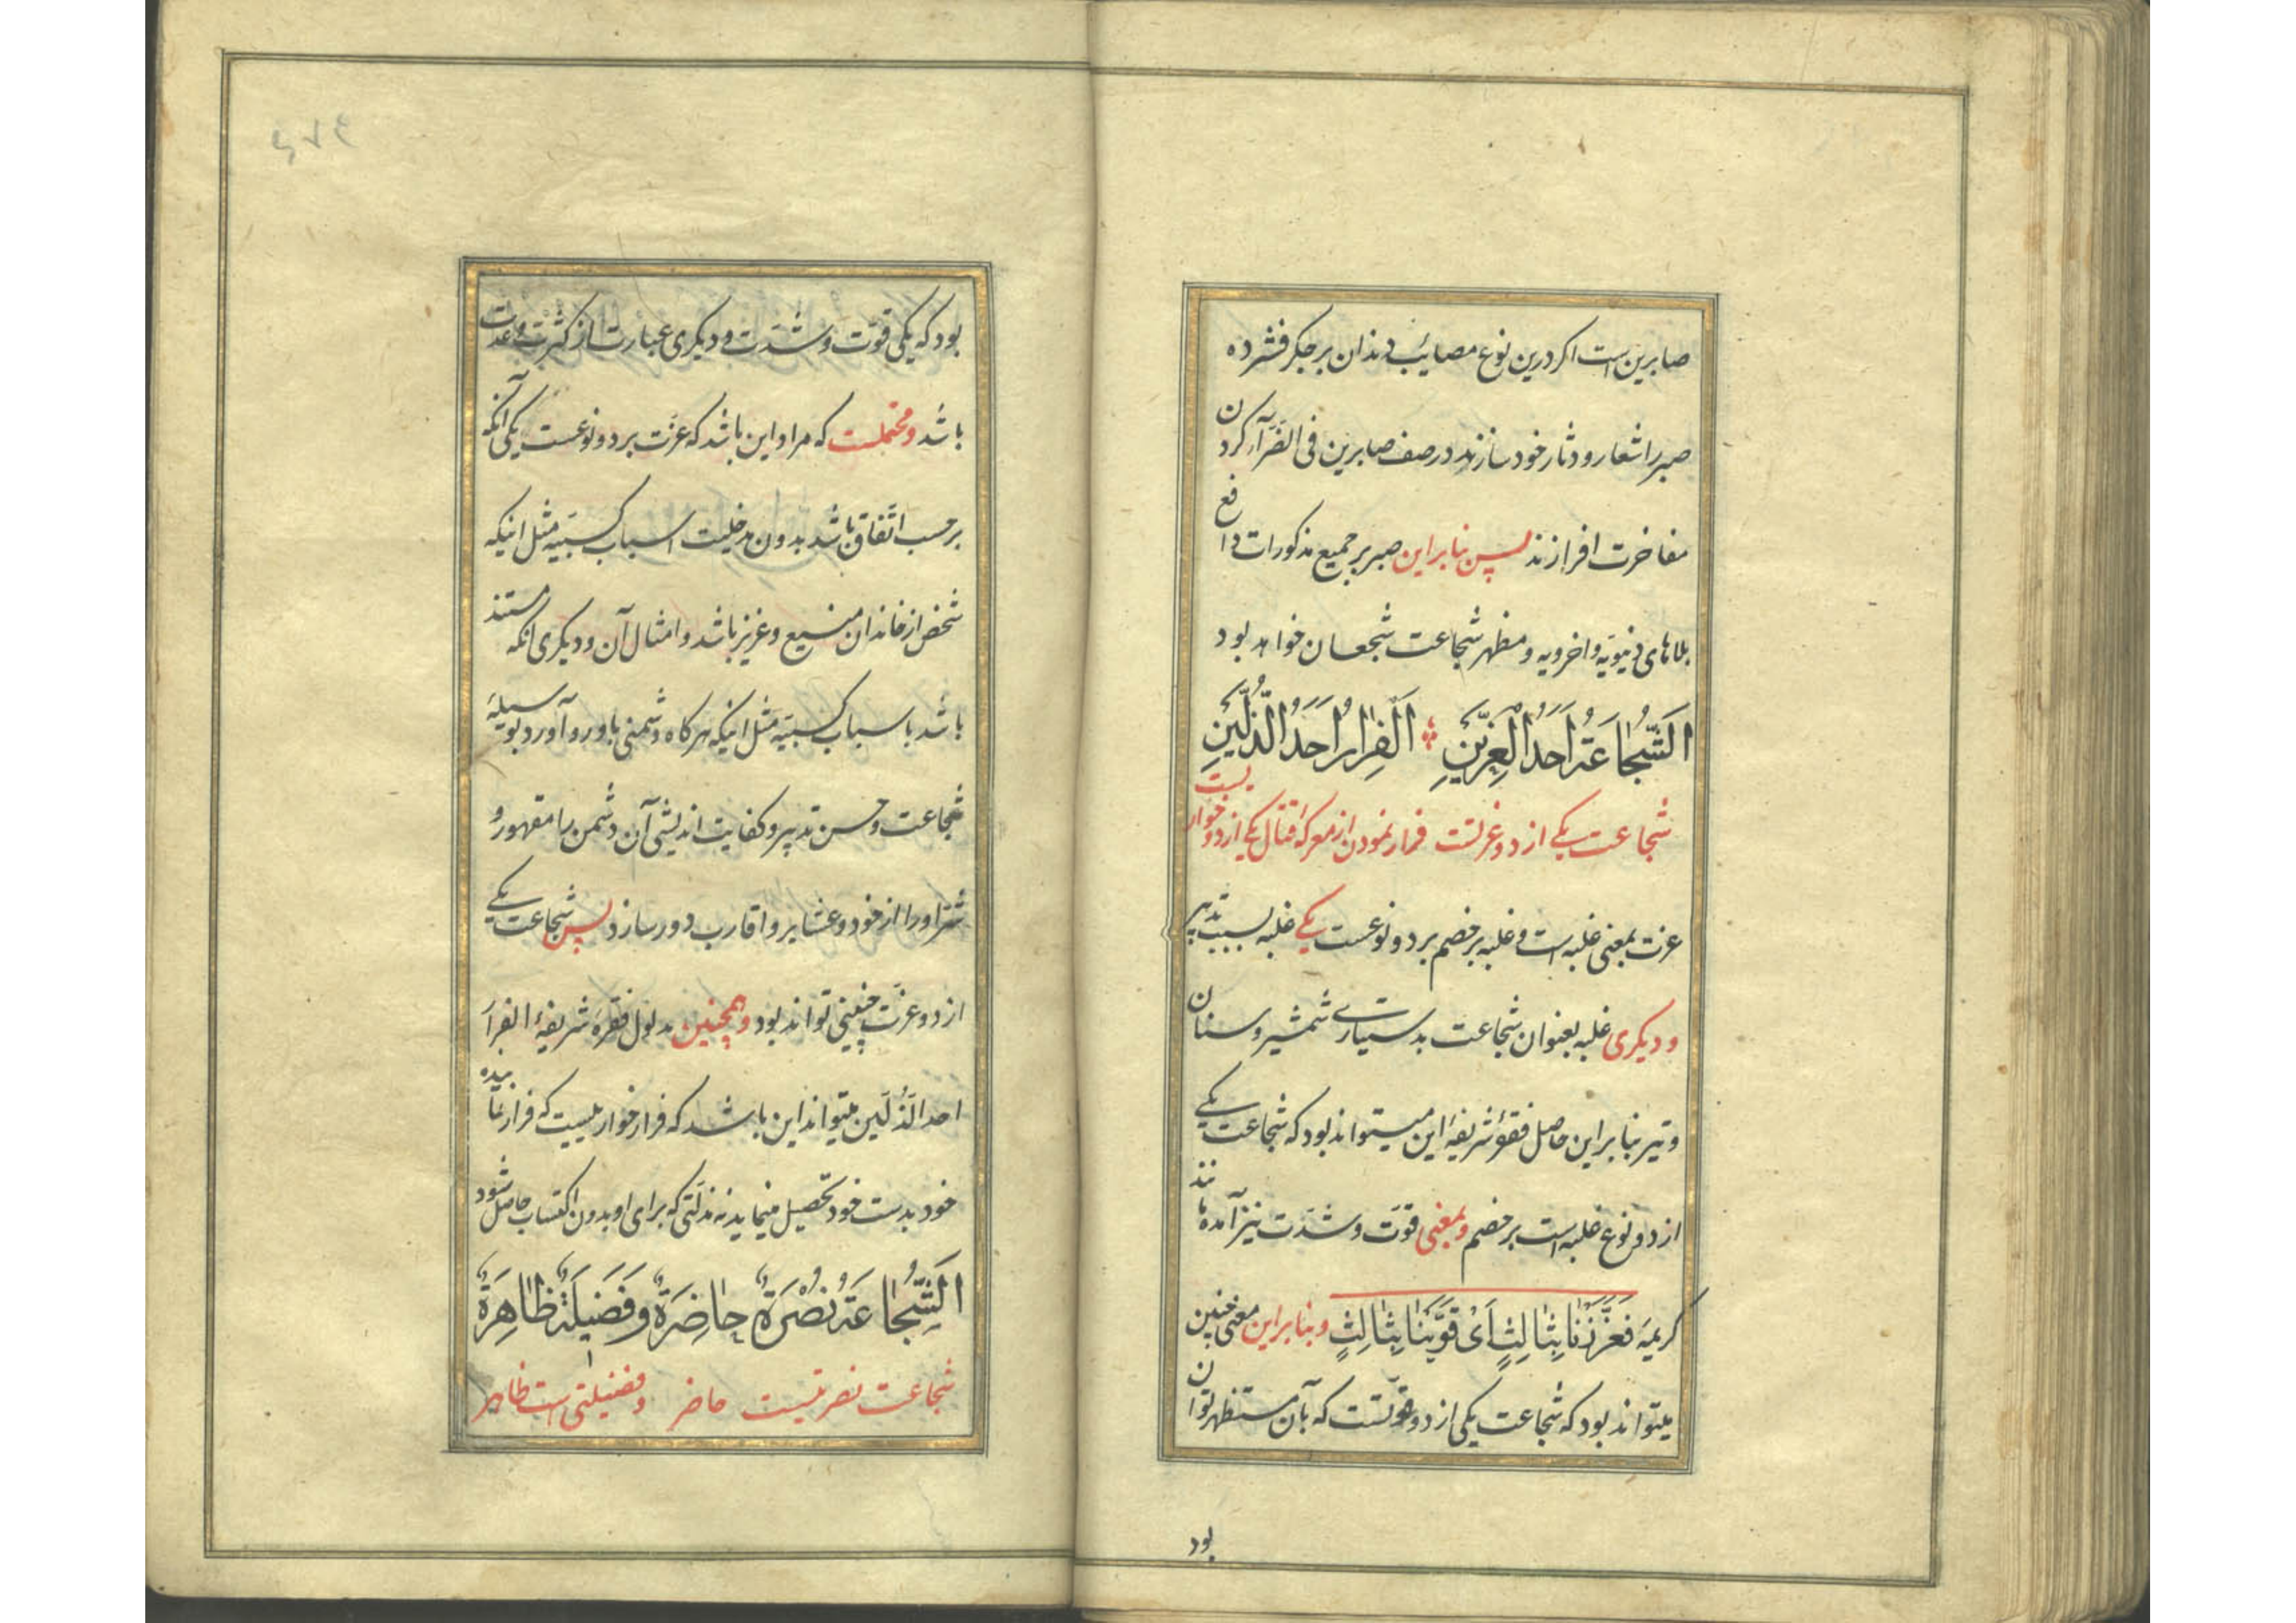 صابرین است اکر درین نوع مصائب دندان بر جکر فشرده
صبر را شعار و دثار خود سازند در صف صابرین فی الضّرّآء کردن
مفاخرت افرازند پس بنابراین صبر بر جمیع مذکورات دافع
بلاهای دنیویّه و اخرویه و مظهر شجاعت شجعان خواهد بود
اَلشَّجٰاعَةُ اَحَدُ الْعِزَّیْنِ اَلْفِرٰارُ اَحَدُ الذُّلَّیْنِ
شجاعت یکے از دو عزتست فرار نمودن از معرکهٔ قتال یکے از دو خواریست
عزت بمعنی غلبه است و غلبه بر خصم بر دو نوعست یکے غلبه بسبب تدبیر
و دیکری غلبه بعنوان شجاعت بدستیارے شمشیر و سنان
و تیر بنابراین حاصل فقرهٔ شریفهٔ این میتواند بود که شجاعت یکے
از دو نوع غلبه است بر خصم و بمعنی قوّت و شدّت نیز آمده مانند
کریمهٔ فَعَزَّزْنٰا بِثٰالِثٍ اَیْ قَوَّیْنٰا بِثٰالِثٍ و بنابراین معنی چنین
میتواند بود که شجاعت یکی از دو قوّتست که بآن مستظهر توان
بود
بود که یکی قوّت و شدّت و دیکری عبارت از کثرت و عدت
باشد و محتملست که مراد این باشد که عزّت بر دو نوعست یکی آنکه
بر حسب اتّفاق باشد بدون مدخلیت اسباب کسبیّه مثل اینکه
شخص از خاندان منیع و عزیز باشد و امثال آن و دیکری آنکه مستند
باشد باسباب کسبیّه مثل اینکه هرکاه دشمنی باو رو آورد بوسیلهٔ
شجاعت و حسن تدبیر و کفایت اندیشی آن دشمن را مقهور و
شرّ او را از خود و عشایر و اقارب دور سازد پس شجاعت یکے
از دو عزّت چنینی تواند بود و همچنین مدلول فقرهٔ شریفهٔ الفرار
احد الذّلّین میتواند این باشد که فرار خواریست که فرار نماینده
خود بدست خود تحصیل مینماید نه مذلّتی که برای او بدون اکتساب حاصل شود
اَلشَّجٰاعَةُ نُصْرَةٌ حٰاضِرَةٌ وَ فَضیلَةٌ ظٰاهِرَةٌ
شجاعت نصرتیست حاضر و فضیلتی است ظاهر